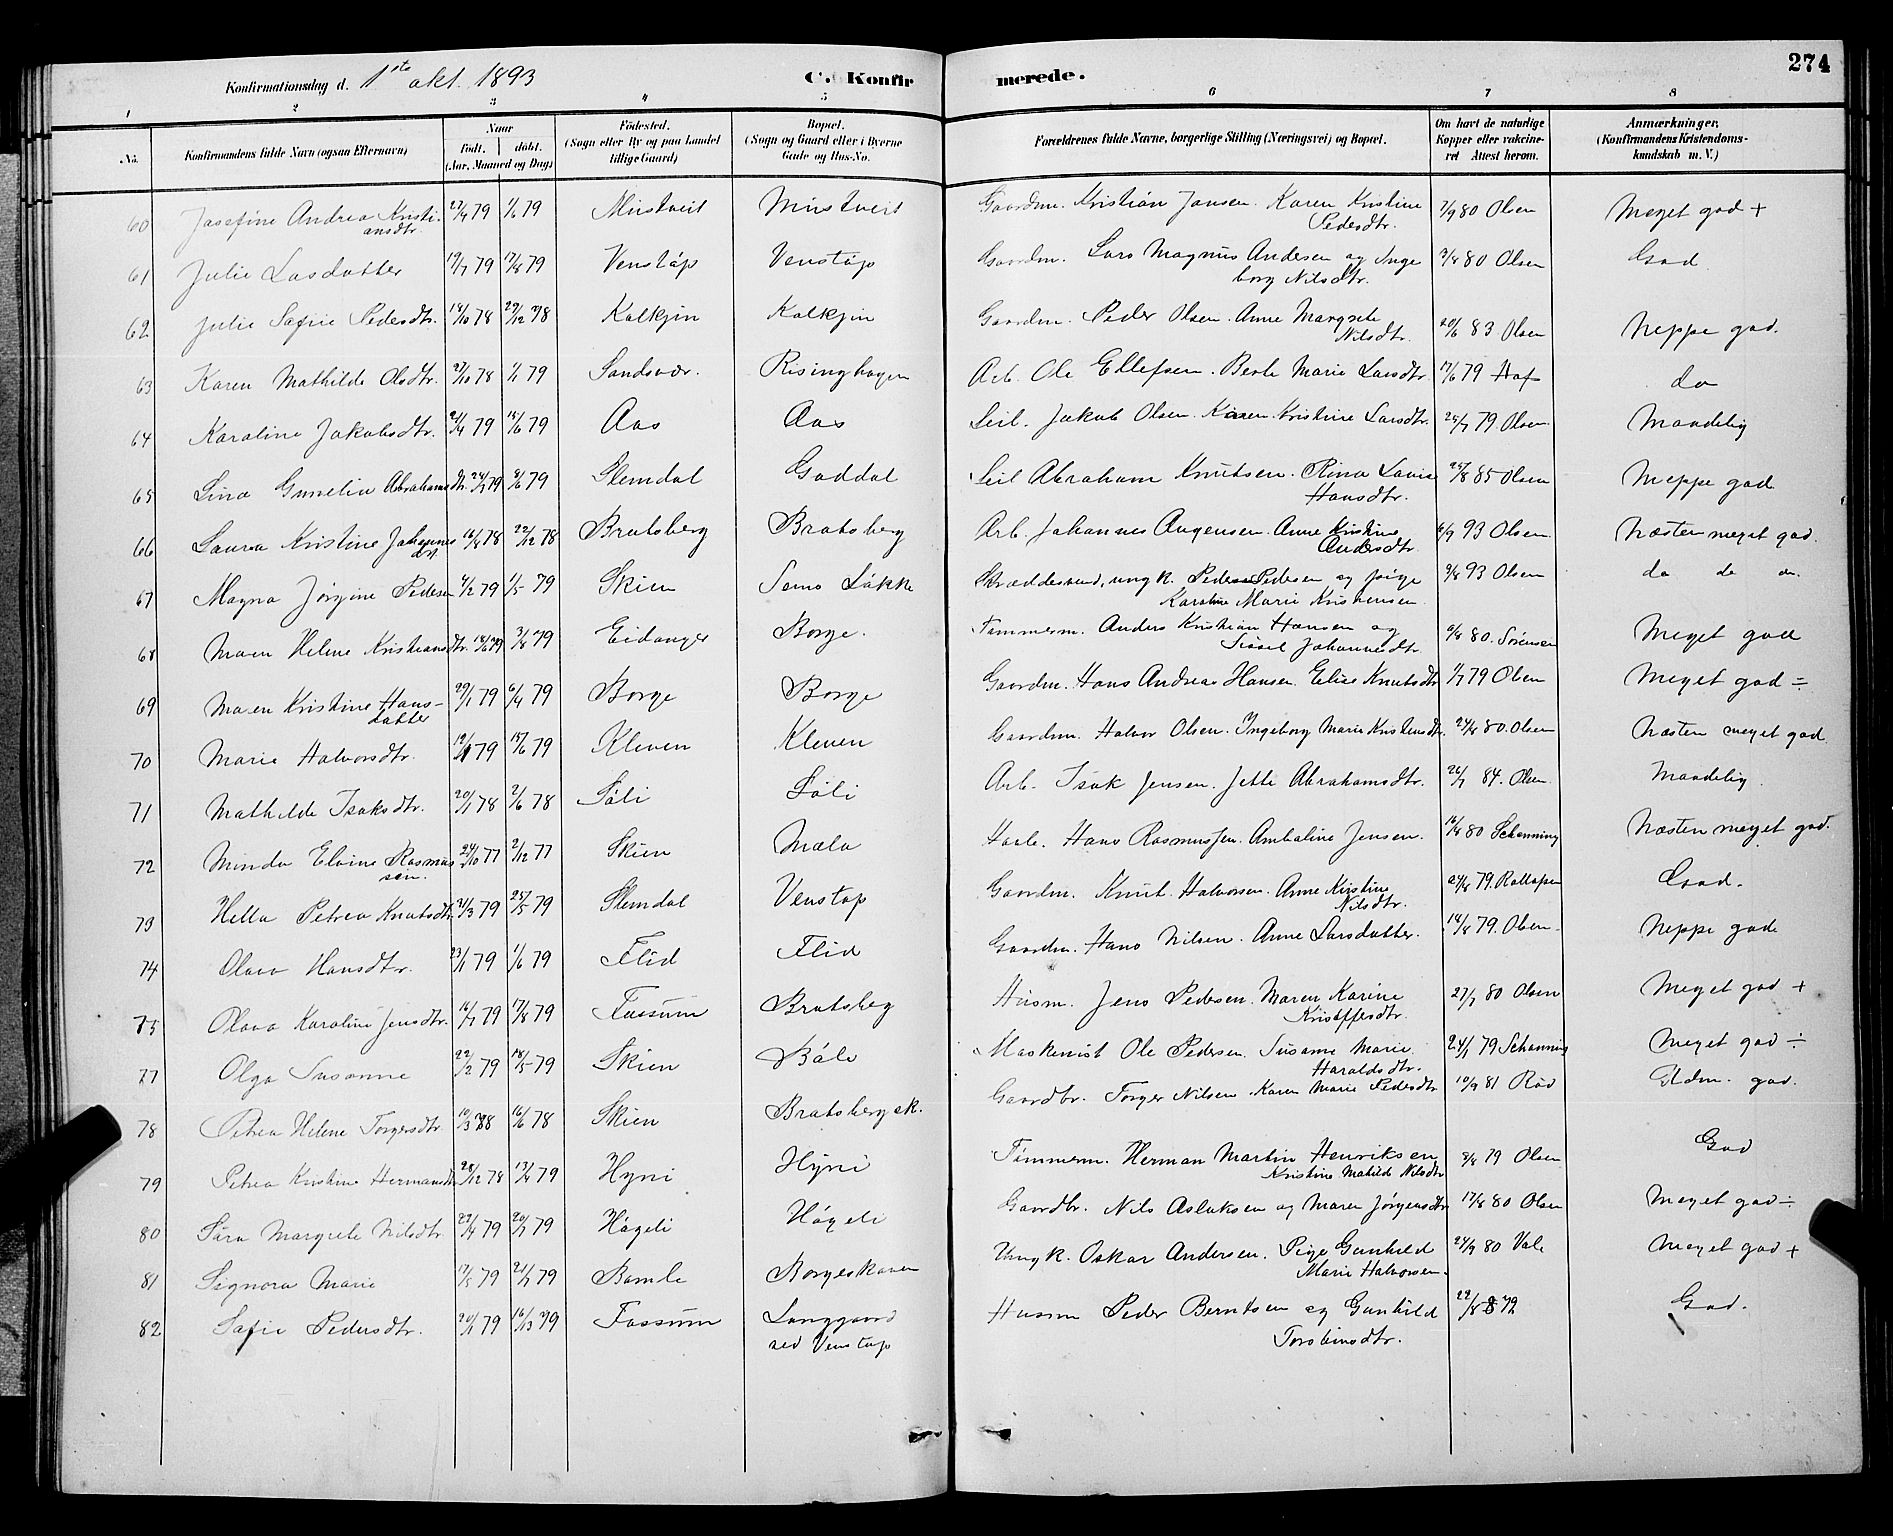 274
Konfirmationsdag d. 1ste okt. 1893 C. Konfirmerede.
1 2 3 4 5 6 7 8
No. Konfirmandens fulde Navn (ogsaa Efternavn) Naar födt. döbt. (Aar, Maaned og Dag) Födested. (Sogn eller By og paa Landet tillige Gaard) Bopæl. (Sogn og Gaard eller i Byerne Gade og Hus-No. Forældrenes fulde Navne, borgerlige Stilling (Næringsvei) og Bopæl. Om havt de naturlige Kopper eller vakcineret Attest herom. Anmærkninger, (Konfirmandens Kristendomskundskab m. V.)
60 Josefine Andrea Kristiansdtr. 27/4 79 1/6 79 Mustveit Mustveit Gaardm. Kristian Jansen. Karen Kristine Pedersdtr. 7/9 80 Olsen Meget god +
61 Julie Lasdatter 19/7 79 17/8 79 Venståp Venståp Gaardm. Lars Magnus Andersen og Ingeborg Nilsdtr. 3/8 80 Olsen God
62 Julie Sofie Pedersdtr. 18/10 78 29/12 78 Kolkjin Kolkjin Gaardm. Peder Olsen. Anne Margrete Nilsdtr. 20/6 83 Olsen Neppe god.
63 Karen Mathilde Olsdtr. 27/10 78 1/1 79 Sandsvær. Risinghagen Arb. Ole Ellefsen. Berte Marie Larsdtr. 17/6 79 Hof do
64 Karoline Jakobsdtr. 21/4 79 15/6 79 Aas Aas Seil. Jakob Olsen. Karen Kristine Larsdtr. 25/7 79 Olsen Maadelig
65 Lina Gunelia Abrahamsdtr. 24/3 79 8/6 79 Slemdal Gaddal Seil Abraham Knutsen. Rina Lovise Hansdtr. 25/8 85 Olsen Neppe god
66 Laura Kristine Johannesdt. 16/8 78 22/12 78 Bratsberg Bratsberg Arb. Johannes Augensen. Anne Kristine Andersdtr. 6/9 93 Olsen Næsten meget god.
67 Magna Jørgine Pedersen 4/2 79 1/5 79 Skien Søms Løkke Skræddersvend, ungk. Peder Pedersen og pige Karoline Marie Kristensen 9/8 93 Olsen do do do.
68 Maren Helene Kristiansdtr. 18/6 79 3/8 79 Eidanger Borge. Tømmerm. Anders Kristian Hansen og Sissel Johannesdtr. 6/8 80. Sørensen Meget god
69 Maren Kristine Hansdatter 29/1 79 6/4 79 Borge Borge Gaardm. Hans Andreas Hansen. Elise Knutsdtr 1/7 79 Olsen Meget god ÷
70 Marie Halvorsdtr. 19/1 79 15/6 79 Kleven Kleven Gaardm. Halvor Olsen. Ingeborg Marie Kristensdtr. 24/8 80. Olsen Næsten meget god.
71 Mathilde Isaksdtr. 20/1 78 2/6 78 Søli Søli Arb. Isak Jensen. Jette Abrahamsdtr. 26/7 84. Olsen Maadelig
72 Minda Elvine Rasmussen. 24/10 77 2/12 77 Skien Mæla Haale. Hans Rasmussen. Ambaline Jensen. 16/8 80 Schanning Næsten meget god.
73 Hella Petrea Knutsdtr. 21/3 79 25/5 79 Slemdal Venstøp Gaardm. Knut Halvorsen. Anne Kirstine Nilsdtr. 24/8 79. Rollefsen God.
74 Olava Hansdtr. 23/1 79 1/6 79 Flid Flid Gaardm. Hans Nilsen. Anne Larsdatter. 14/8 79. Olsen Neppe god
75 Olava Karoline Jensdtr. 16/7 79 17/8 79 Fossum Bratsbeg Husm. Jens Pedersen. Maren Karine Kristoffersdtr. 27/7 80 Olsen Meget god +
77 Olga Susanne 22/2 79 18/5 79 Skien Bøle Maskenist Ole Pedersen. Susanne Marie Haraldsdtr. 24/9 79 Schanning Meget god ÷
78 Petrea Helene Torgersdtr 10/3 78 16/6 78 Skien Bratsbergsk. Gaardbr. Torger Nilsen. Karen Marie Pedersdtr 10/9 81 Rød Udm. god.
79 Petrea Kristine Hermansdtr 28/12 78 13/4 79 Hyni Hyni Tømmerm. Herman Martin Henriksen Kristine Matilde Nilsdtr 8/8 79 Olsen God
80 Sara Margrete Nilsdtr. 29/4 79 20/7 79 Høgeli Høgeli Gaardbr. Nils Aslaksen og Maren Jørgensdtr 17/8 80 Olsen Meget god ÷
81 Signora Marie 17/5 79 21/7 79 Bamle Borgeskoven Ungk. Oskar Andersen. Pige Gunhild Marie Halvorsen. 24/9 80 Vale Meget god +
82 Sofie Pedersdtr. 20/1 79 16/3 79 Fossum Langgaard ved Venstøp Husm Peder Berntsen og Gunhild Torsteinsdtr. 22/8 79 God.